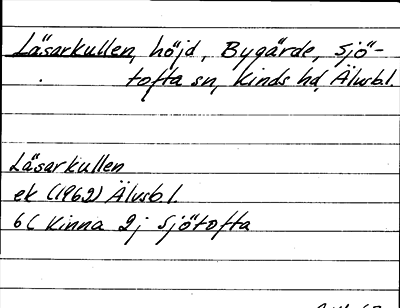 Läsarkullen, höjd, Bygärde, Sjö-
tofta sn, Kinds hd, Älvsbl.
Läsarkullen
ek (1962) Älvsbl.
6C Kinna 2j Sjötofta